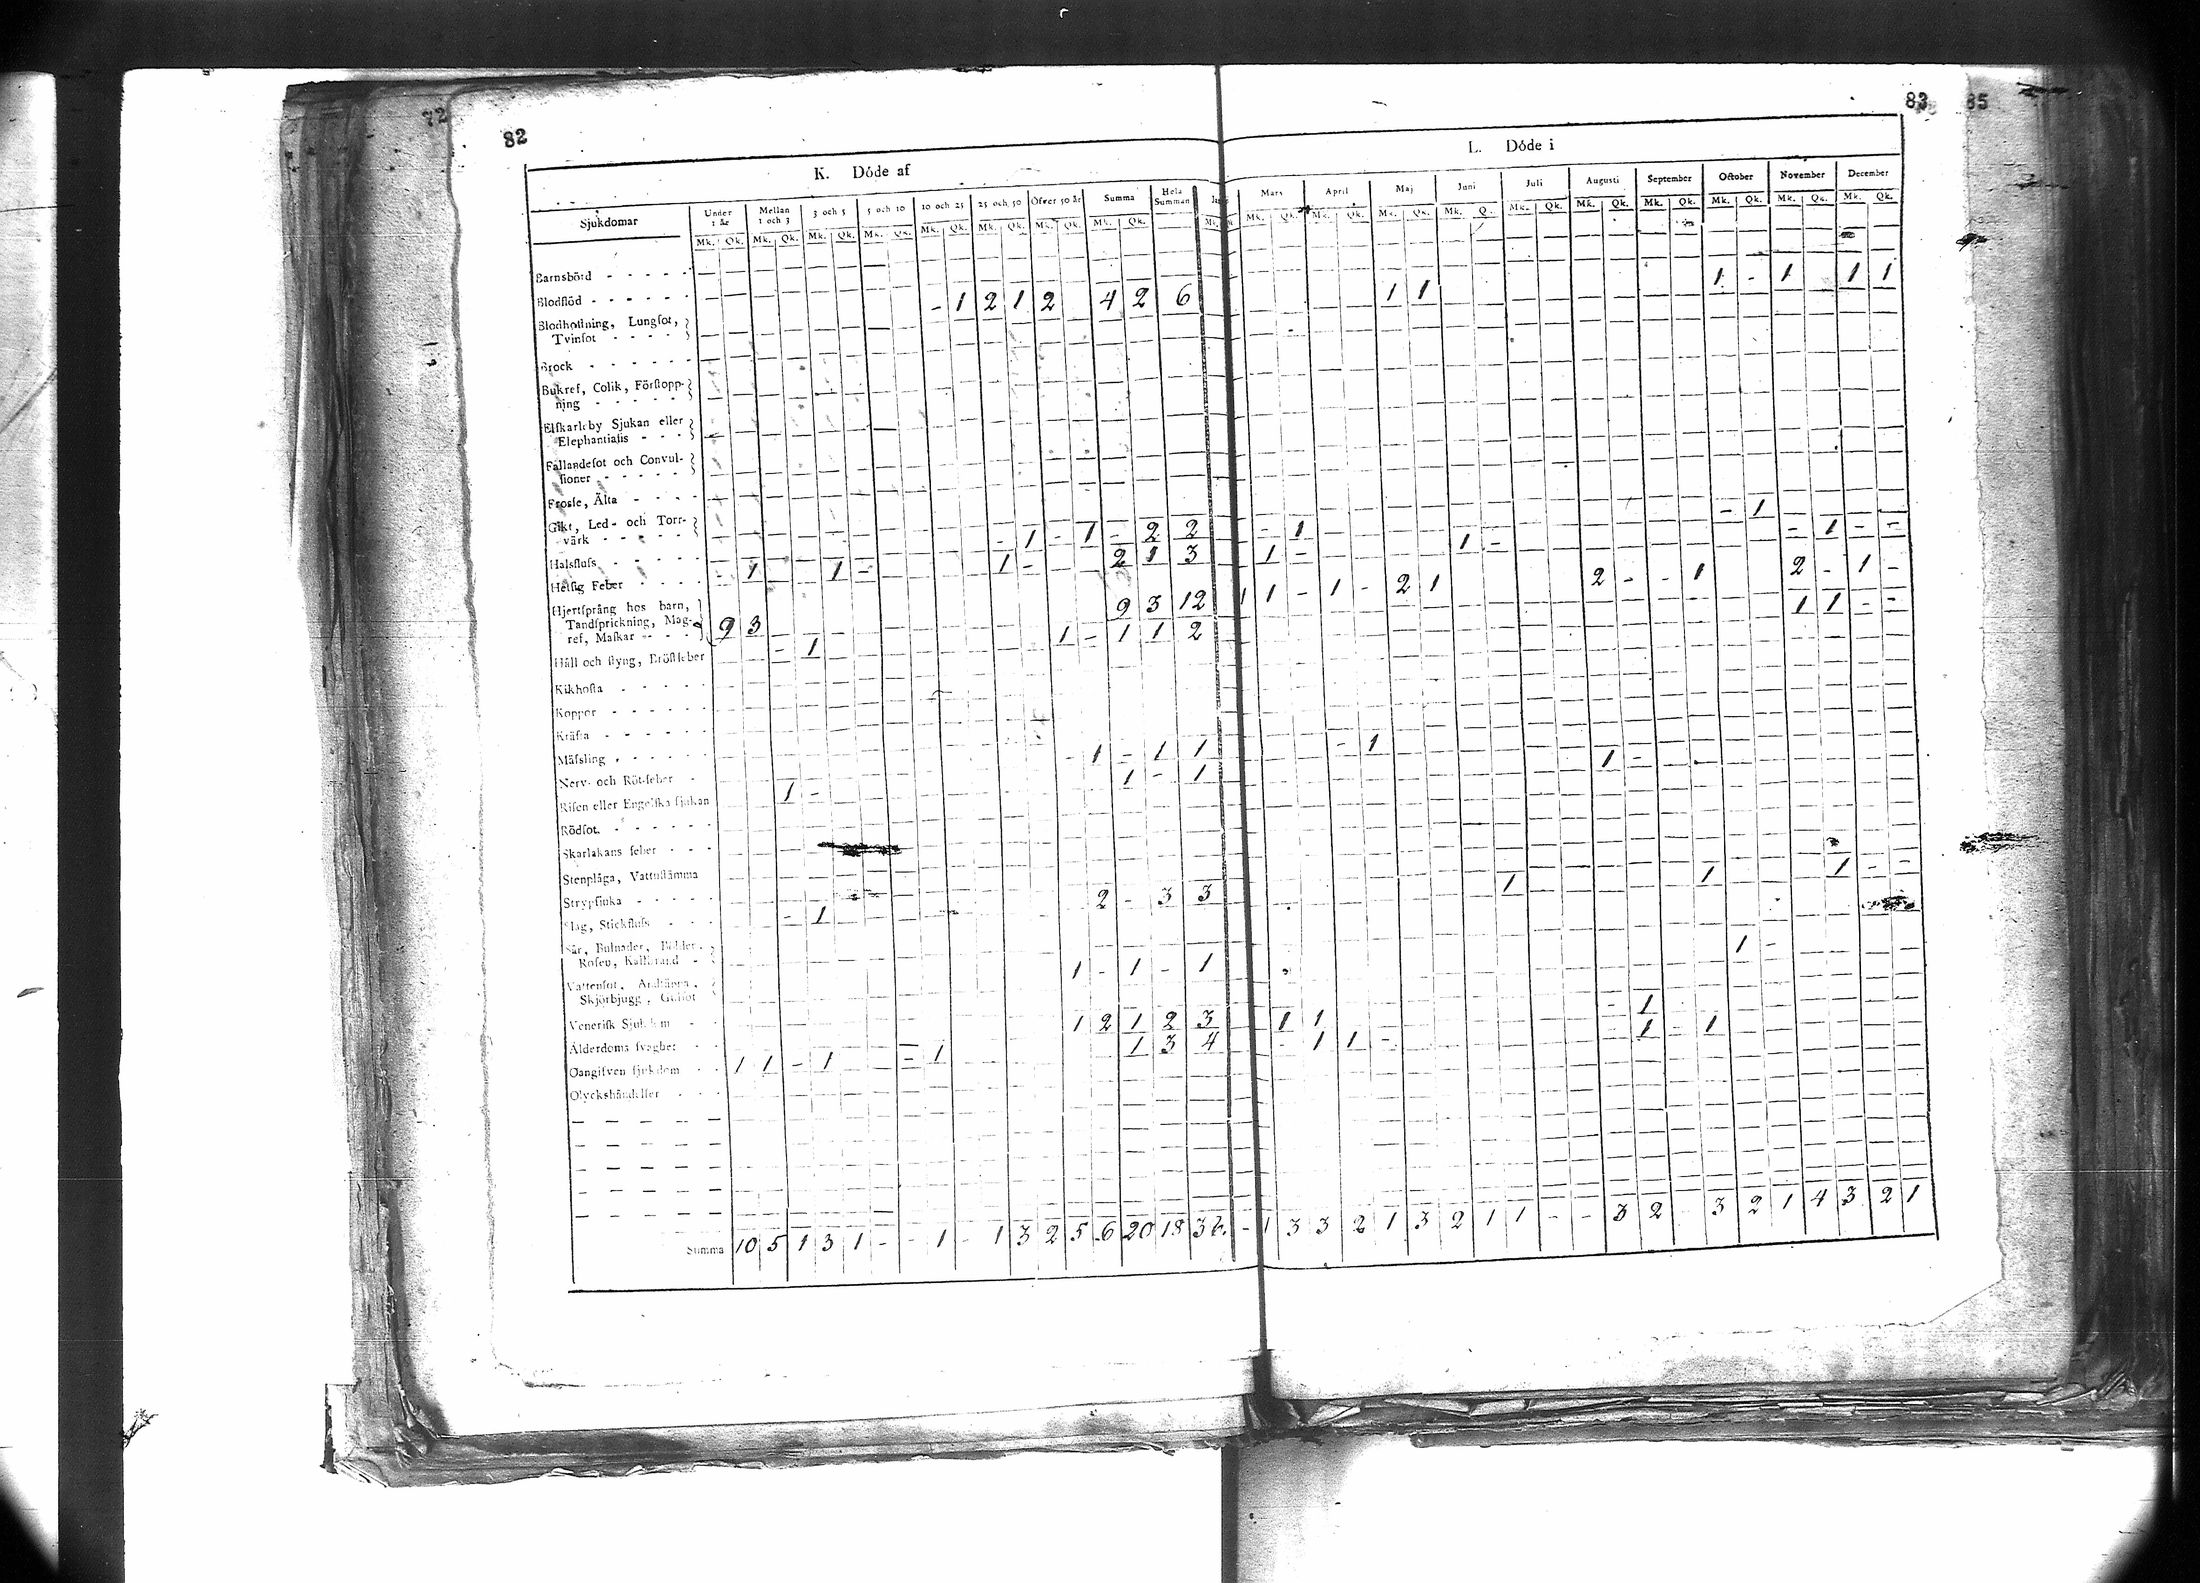 72
82
83
85
K. Döde af
L. Döde i
Sjukdomar
Under 1 år
Mellan 1 och 3
3 och 5
5 och 10
10 och 25
25 och 50
Öfver 50 år
Summa
Hela Summan
Mars
April
Maj
Juni
Juli
Augusti
September
October
November
December
Mk. Qk. Mk. Qk. Mk. Qk. Mk. Qk. Mk. Qk. Mk. Qk. Mk. Qk. Mk. Qk.
Mk. Qk. Mk. Qk. Mk. Qk. Mk. Q. Mk. Qk. Mk. Qk. Mk. Qk. Mk. Qk. Mk. Qk. Mk. Qk.
Barnsbörd - - - -
Blodflöd - - - - - - 1 2 1 2 4 2 6 1 1 1 - 1 1 1
Blodhostning, Lungsot,
Tvinsot - - - -
Brock - - - - -
Bukref, Colik, Förstopp-
ning - - - - -
Elfkarleby Sjukan eller
Elephantiasis - - -
Fallandesot och Convul-
sioner - - - - -
Frosse, Älta - - - -
Gikt, Led- och Torr-
värk - - - - - - 1 - 1 - 2 2 - 1 - 1
Halsfluss - - - - - 1 1 - 1 - 2 1 3 1 - 1 - - 1 - -
Hetsig Feber - - - -
Hjertsprång hos barn,
Tandsprickning, Mag-
ref, Maskar - - - 9 3 9 3 12 1 1 - 1 - 2 1 2 - - 1 2 - 1 -
Håll och styng, Bröstfeber - 1 1 - 1 1 2 1 1 - -
Kikhosta - - - -
Koppor - - - - -
Kräfta - - - - -
Mässling - - - - -
Nerv- och Röt-feber - - 1 - 1 1 - 1
Risen eller Engelska sjukan 1 - 1 - 1 1 -
Rödsot. - - - - -
Skarlakans feber - - -
Stenplåga, Vattustämma
Strypsjuka - - - - -
Slag, Stickfluss - - - - 1 2 - 3 3 1 1 1 - -
Sår, Bulnader, Bölder,
Rosen, Kallbrand - 1 - 1 - 1 1 -
Vattensot, Andtäppa,
Skjörbjugg, Gulsot
Venerisk Sjukdom - -
Ålderdoms svaghet - - 1 2 1 2 3 1 1 - 1
Oangifven sjukdom - - 1 1 - 1 - 1 1 3 4 - 1 1 - 1 - 1
Olyckshändelser - - -
Summa 10 5 1 3 1 - - 1 - 1 3 2 5 6 20 18 - 1 3 3 2 1 3 2 1 1 - - 3 2 - 3 2 1 4 3 2 1